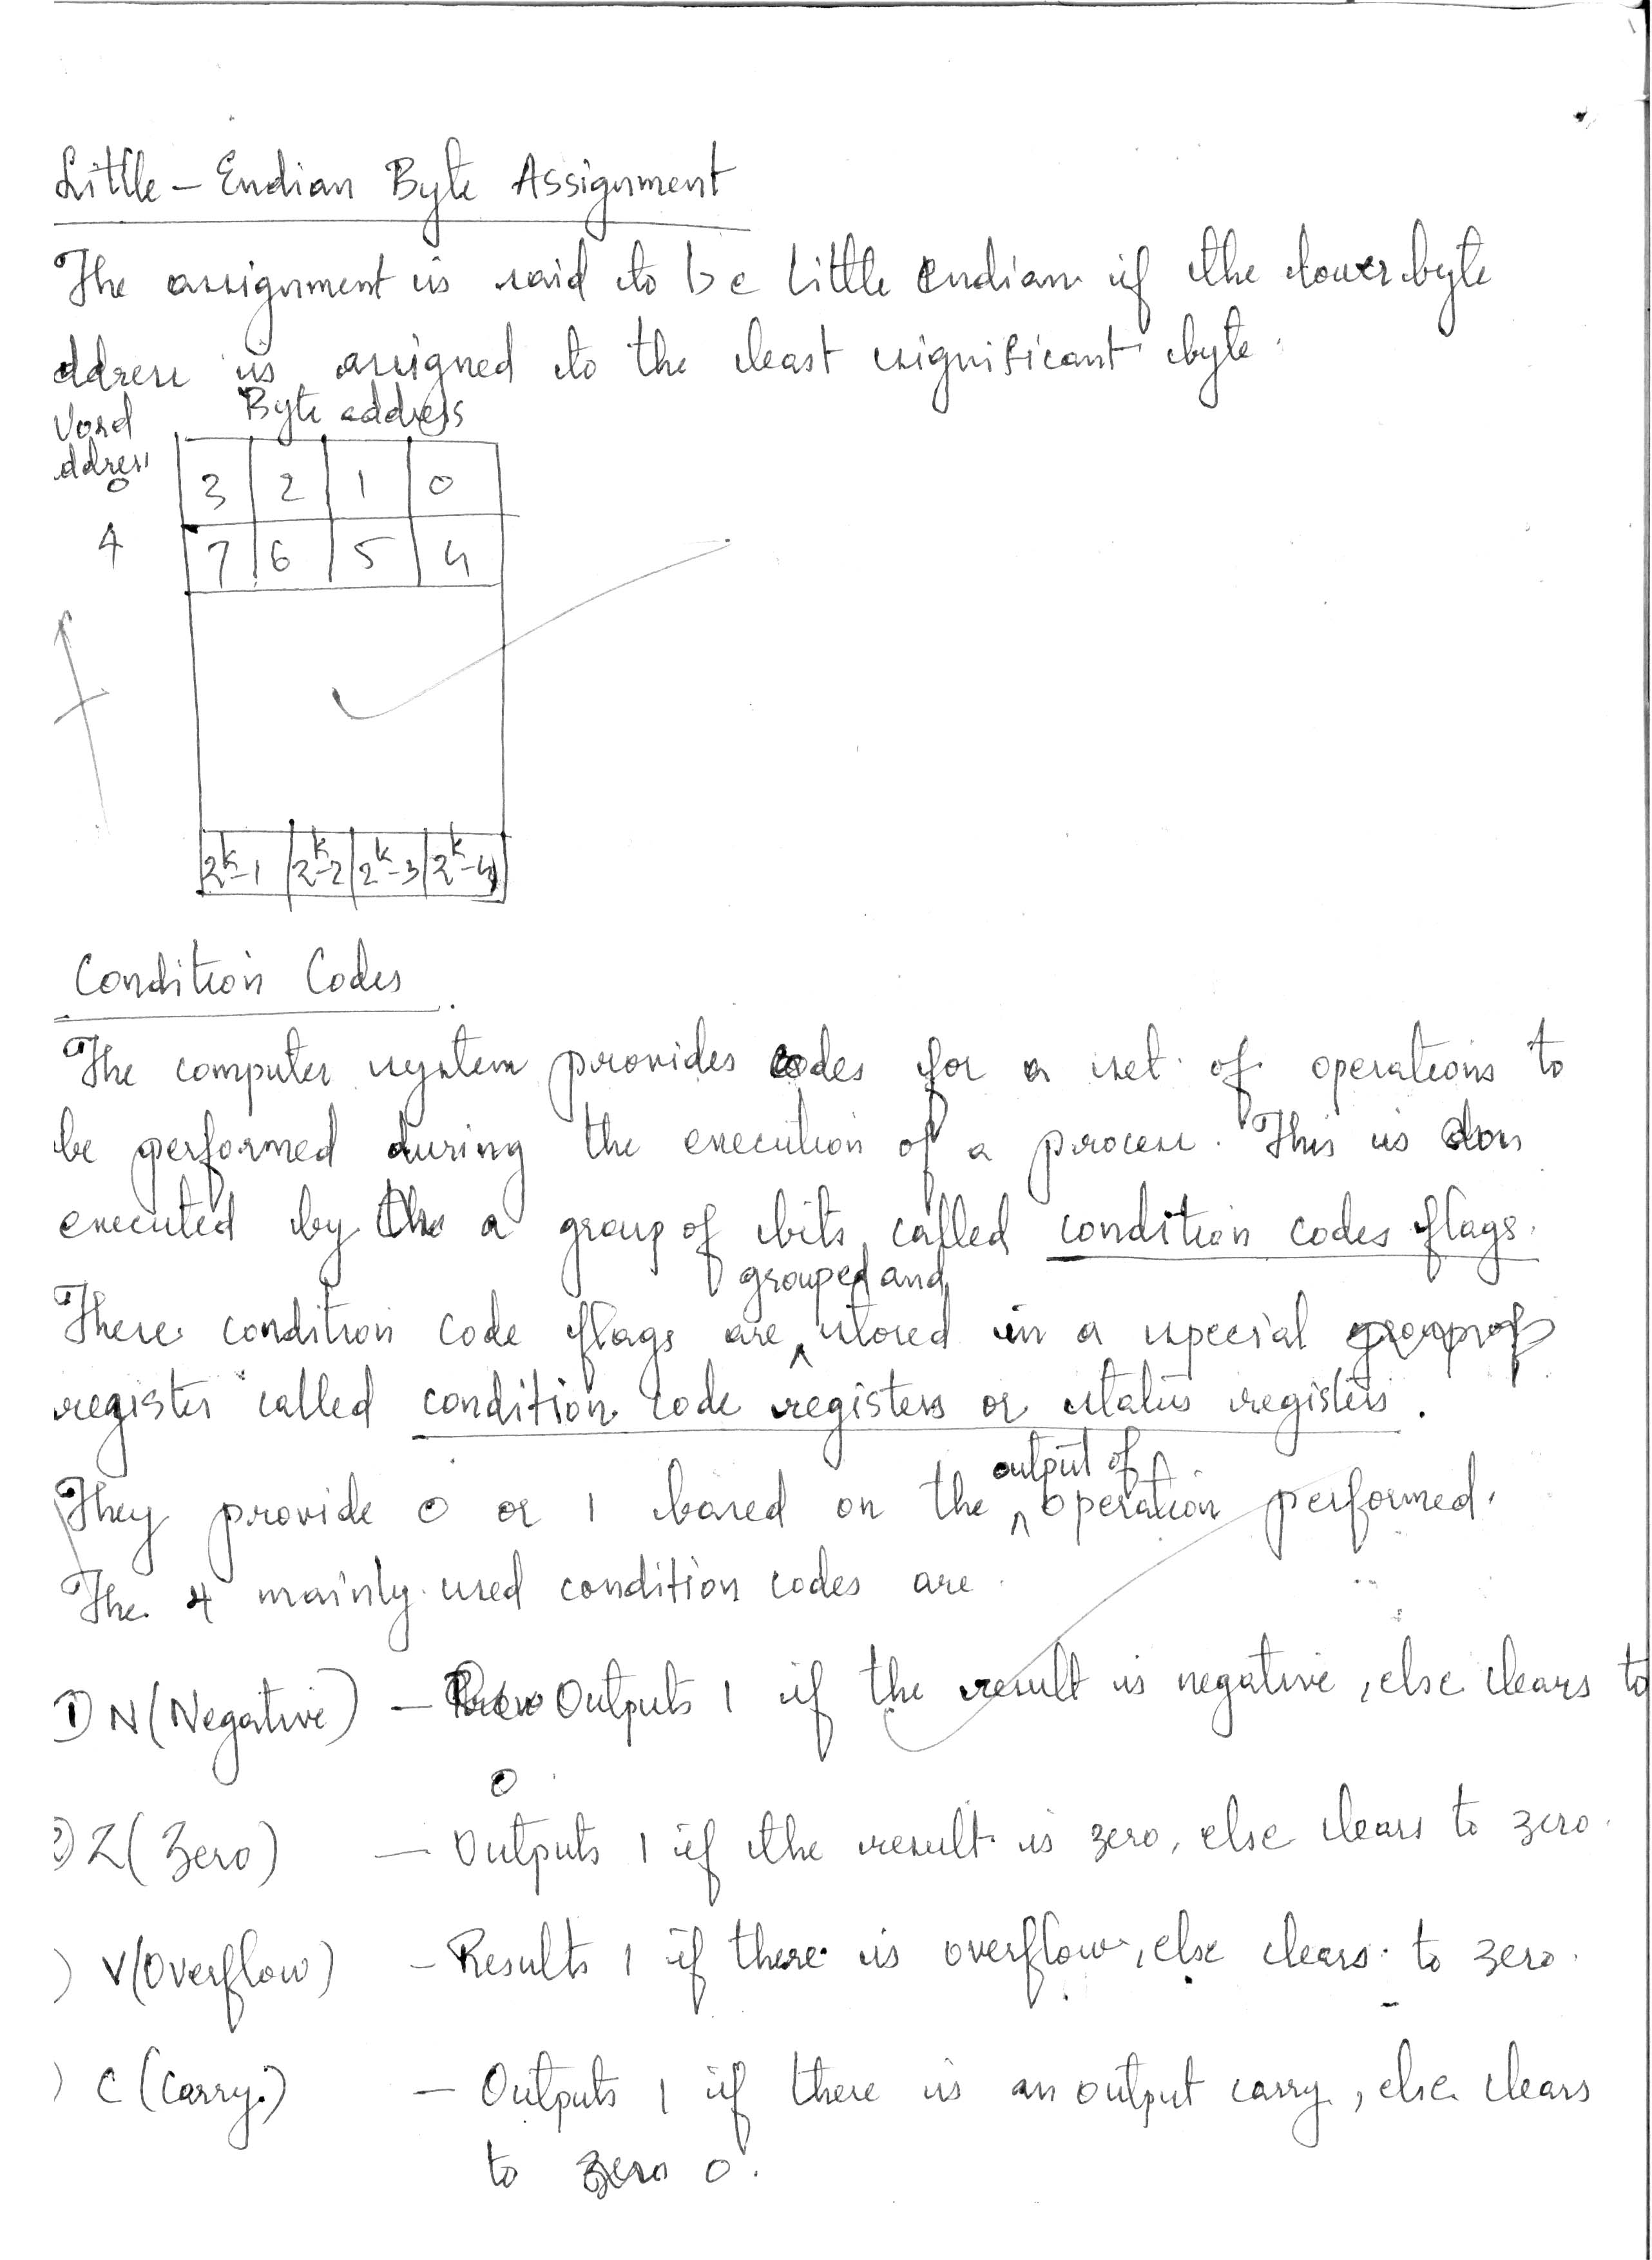 Little - Endian Byte Assignment
The assignment is said to be little endian if the lower byte
ddress is assigned to the least significant byte.
Byte address
Word
ddress
0 3 2 1 0
4 7 6 5 4
2^k-1 2^k-2 2^k-3 2^k-4
Condition Codes
The computer system provides codes for a set of operations to
be performed during the execution of a process. This is
executed by a group of bits called condition codes flags.
These condition code flags are grouped and stored in a special
register called condition code registers or status registers.
They provide 0 or 1 based on the output of operation performed.
The 4 mainly used condition codes are
1) N (Negative) - Outputs 1 if the result is negative, else clears to
0.
2) Z (Zero) - Outputs 1 if the result is zero, else clears to zero.
) V (Overflow) - Results 1 if there is overflow, else clears to zero.
) C (Carry) - Outputs 1 if there is an output carry, else clears
to 0.